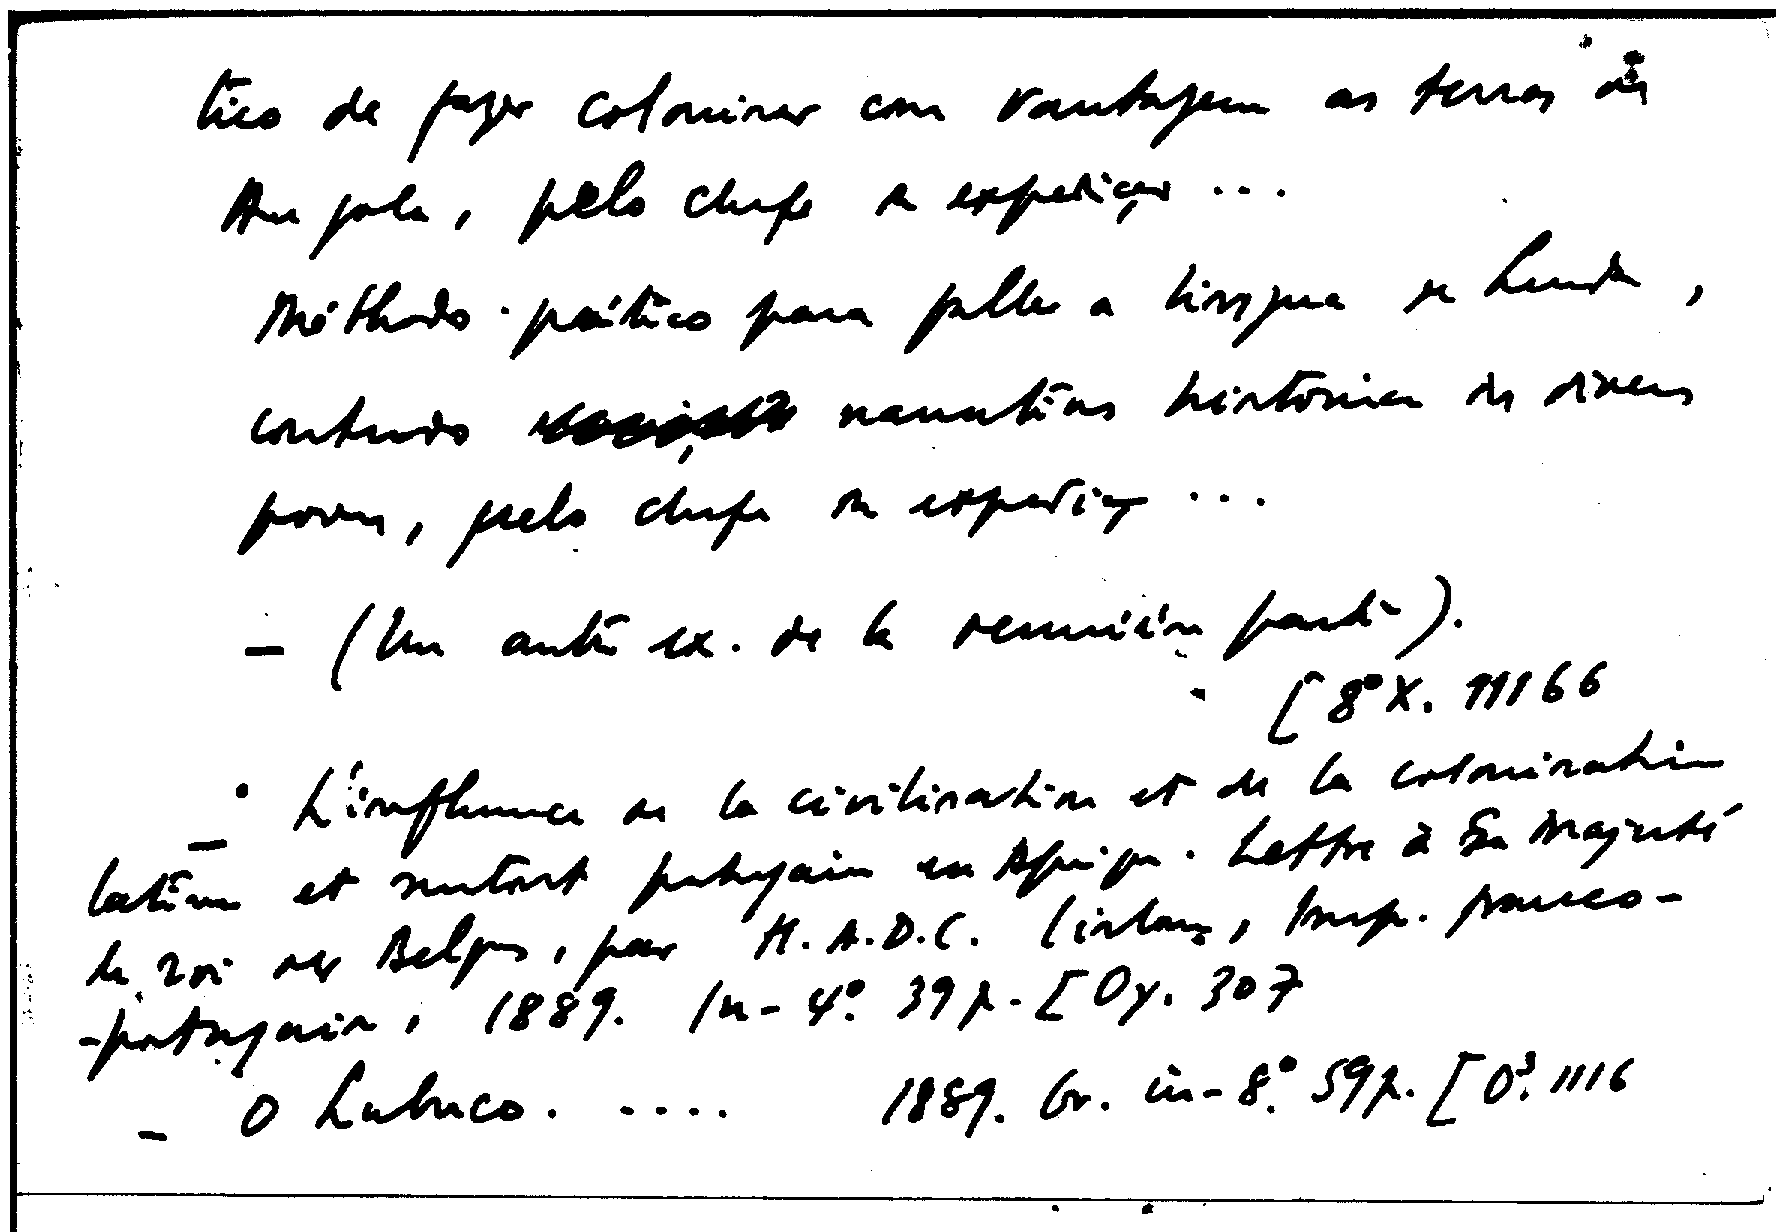 tico de fazer colonisar com vantagem as terras de
Angola, pelo chefe da expedição ...
Méthodo prático para fallar a lingua da Lunda,
contendo narrativas historicas dos diversos
povos, pelo chefe da expedição ...
- (Un autre ex. de la seconde partie).
[8° X. 11166
- L'influence de la civilisation et de la colonisation
latine et surtout portugaise en Afrique. Lettre à Sa Majesté
le roi des Belges, par H.A.D.C. Lisbonne, Imp. franco-
-portugaise, 1889. In-4°. 39 p. [Oy. 307
- O Lubuco. .... 1889. Gr. in-8°. 59 p. [O³. 1116